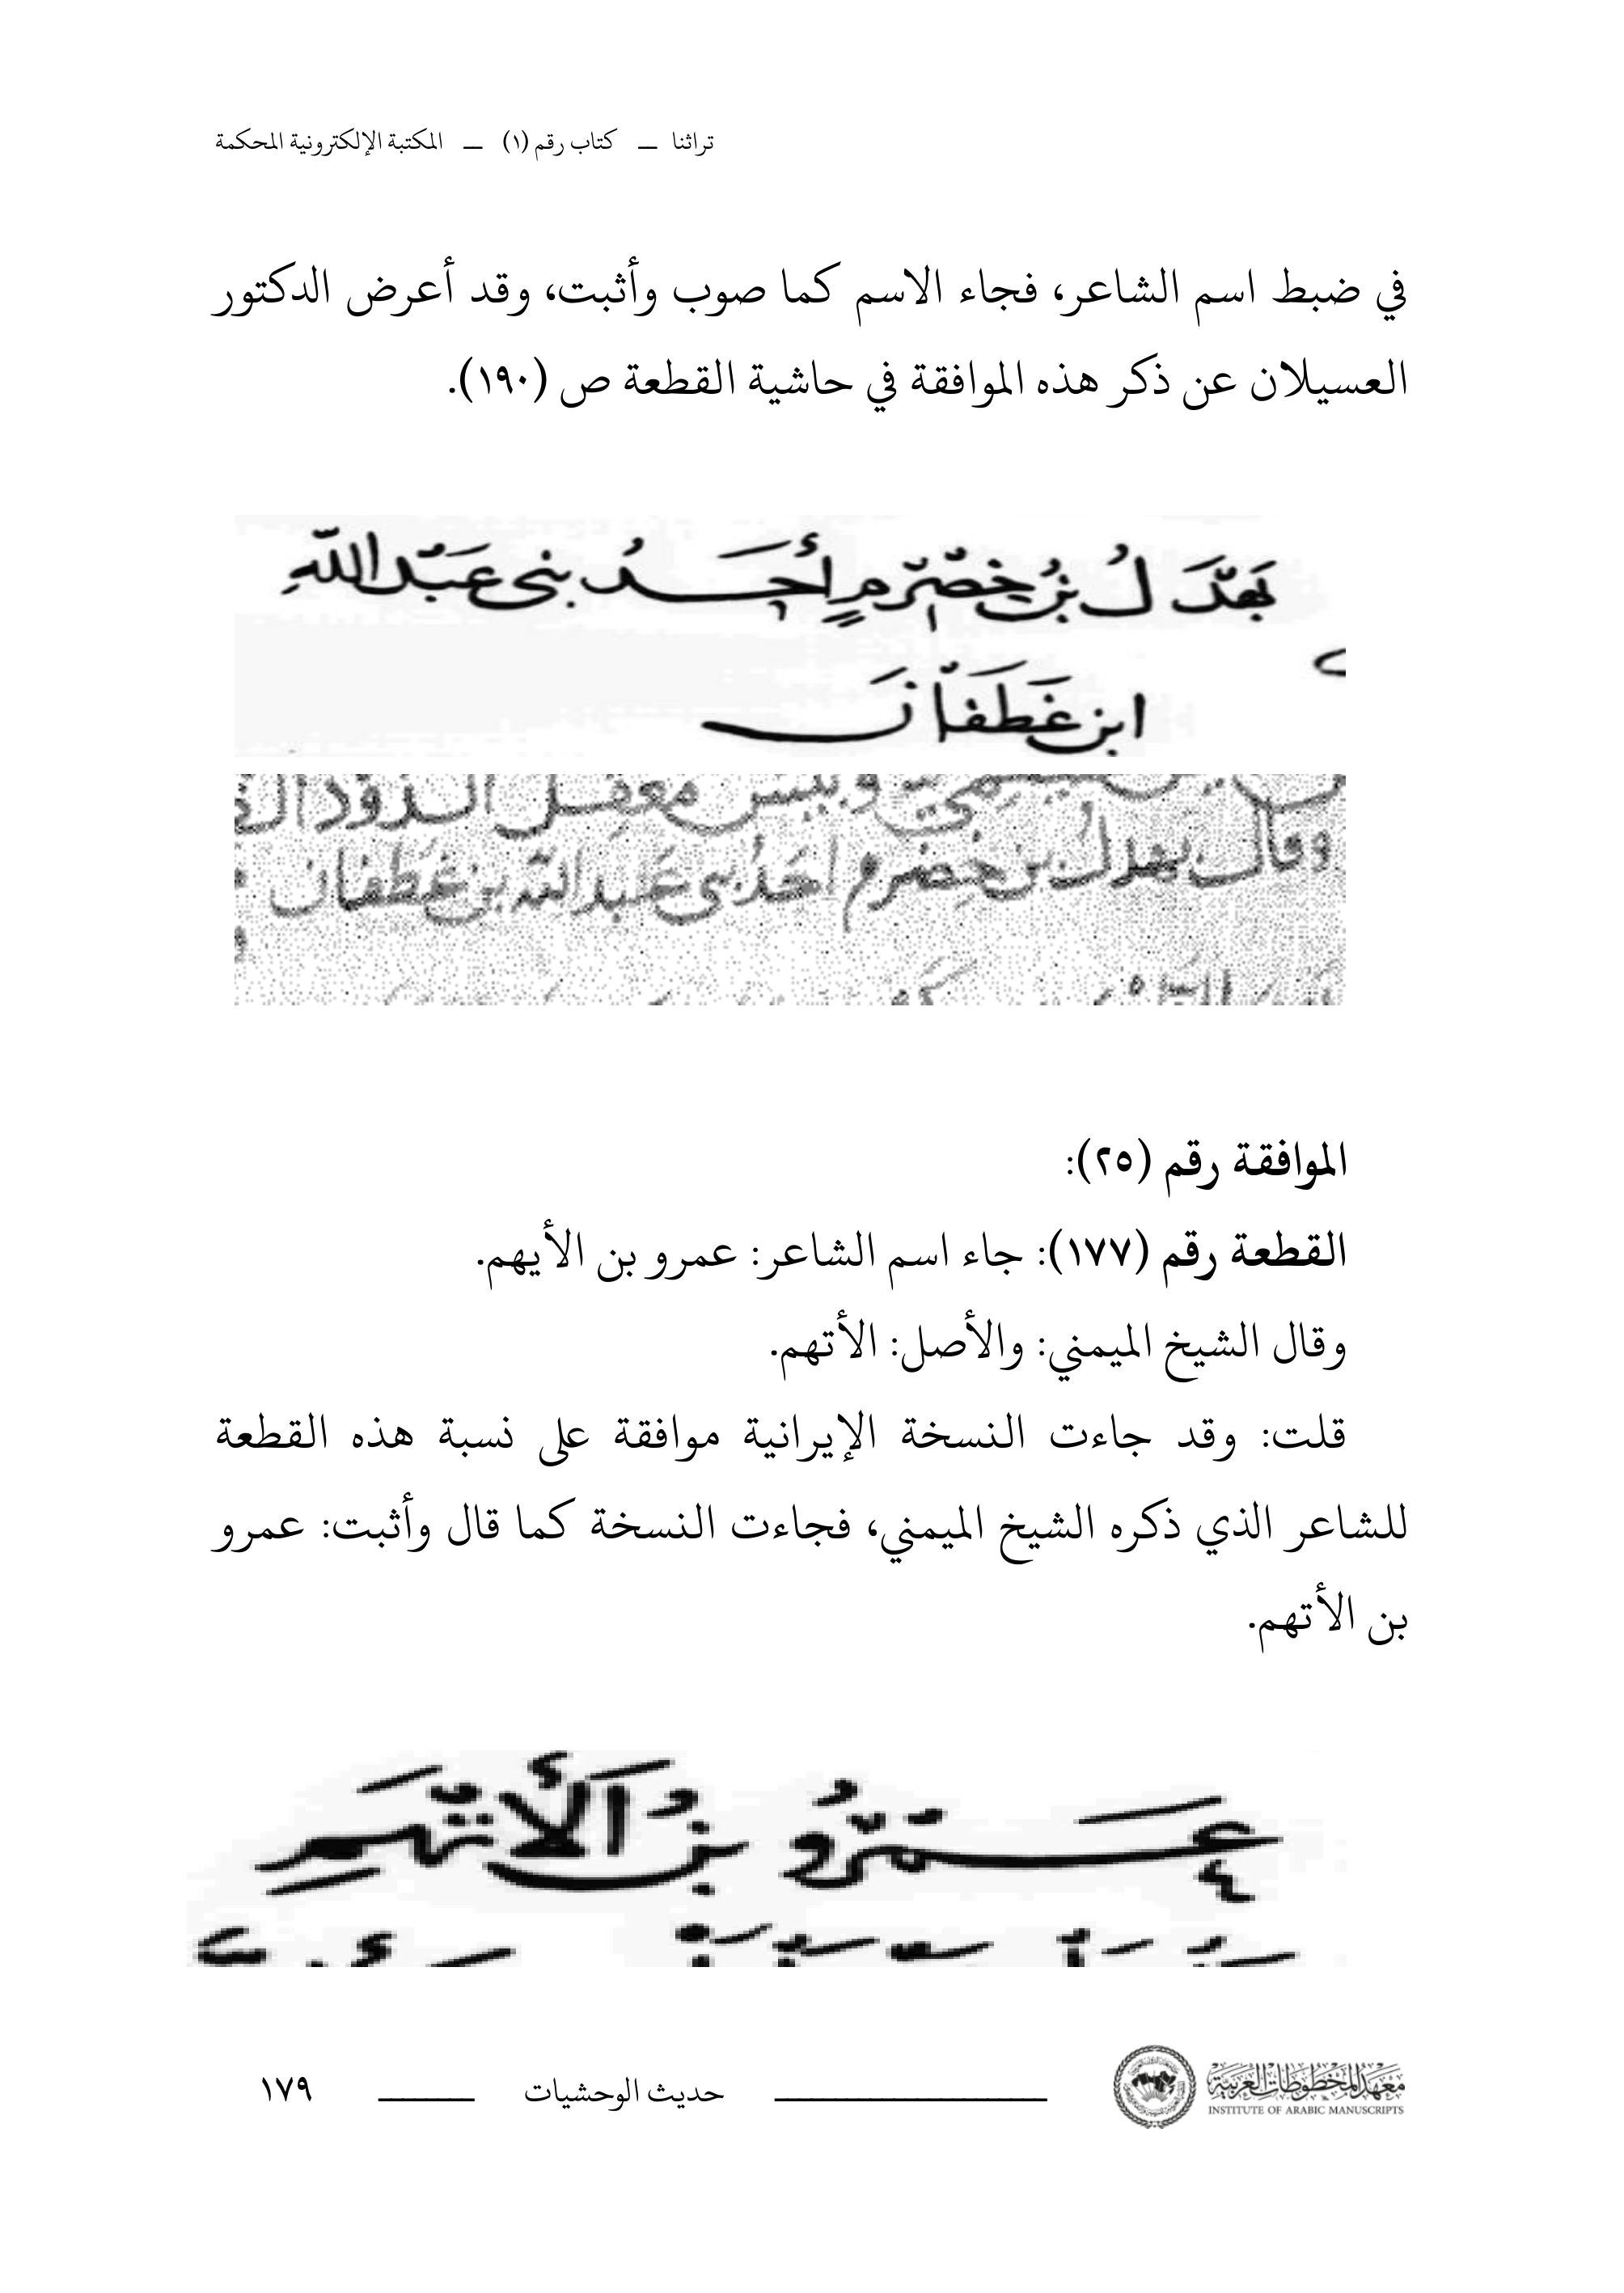 تراثنا — كتاب رقم (١) — المكتبة الإلكترونية المحكمة
في ضبط اسم الشاعر، فجاء الاسم كما صوب وأثبت، وقد أعرض الدكتور
العسيلان عن ذكر هذه الموافقة في حاشية القطعة ص (١٩٠).
بَهْدَلُ بنُ خِضْرِمٍ أَحَدُ بنى عَبْدِ اللّهِ
ابن غَطَفَانَ
وبيس معقل الذود
وقال بهدل بن خضرم احَدُ بنى عَبد الله بن غطفان
الموافقة رقم (٢٥):
القطعة رقم (١٧٧): جاء اسم الشاعر: عمرو بن الأيهم.
وقال الشيخ الميمني: والأصل: الأتهم.
قلت: وقد جاءت النسخة الإيرانية موافقة على نسبة هذه القطعة
للشاعر الذي ذكره الشيخ الميمني، فجاءت النسخة كما قال وأثبت: عمرو
بن الأتهم.
عَمْرُو بنُ الَأتْهَمِ
معهد المخطوطات العربية
INSTITUTE OF ARABIC MANUSCRIPTS
حديث الوحشيات
١٧٩